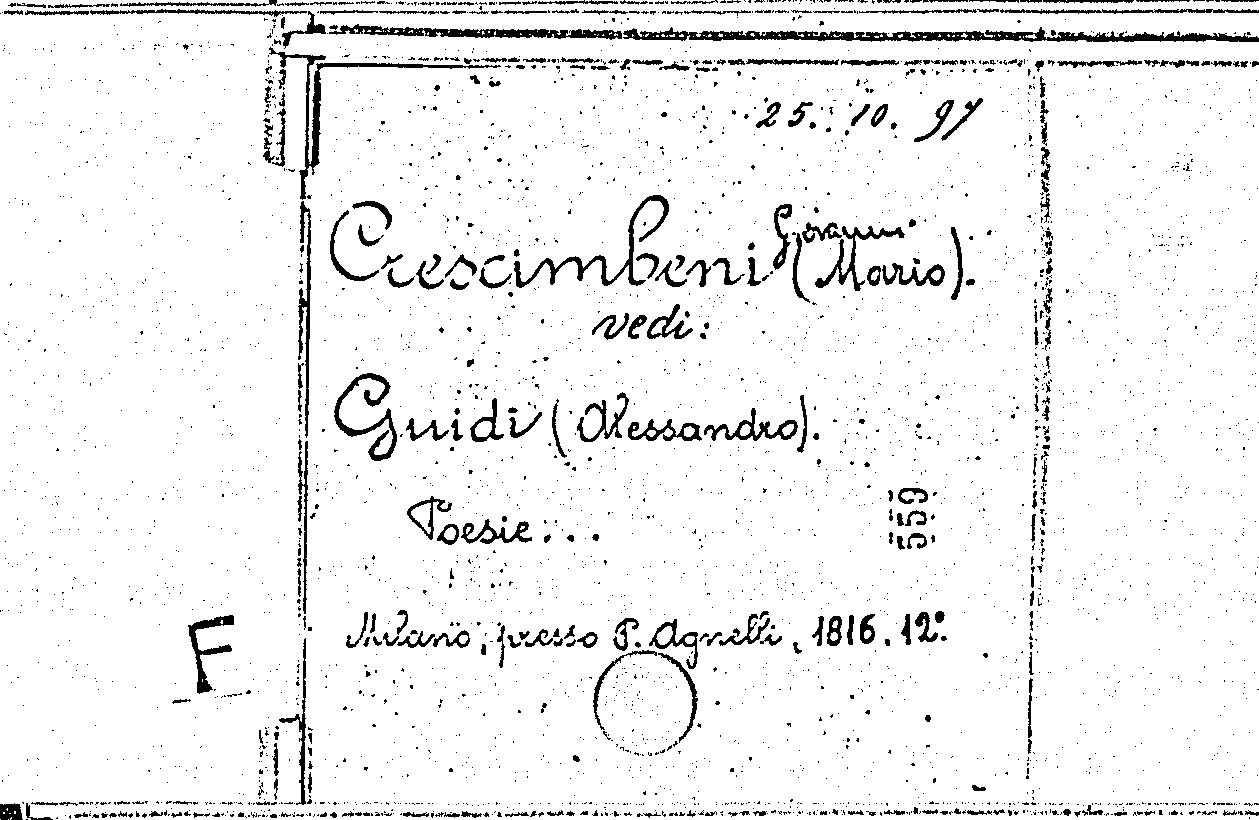 25. 10. 97
Crescimbeni (Giovanni Mario).
vedi:
Guidi (Alessandro).
Poesie...
559
Milano, presso P. Agnelli, 1816. 12º.
F